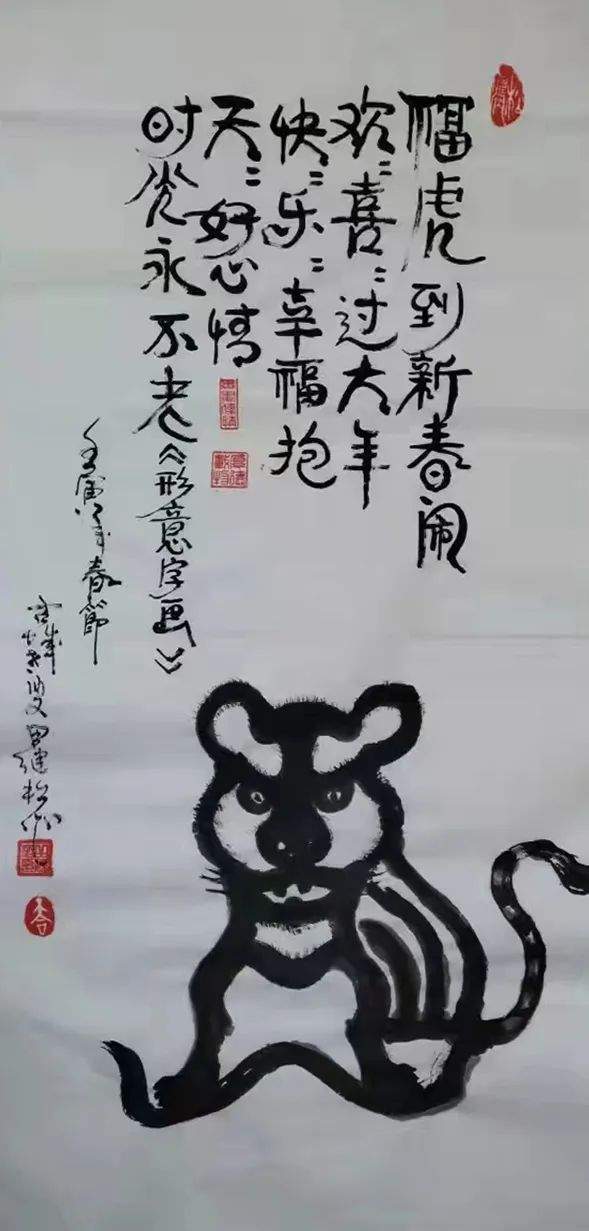 福虎到新春闹
欢〻喜〻过大年
快〻乐〻幸福抱
天〻好心情
时光永不老《形意字画》
壬寅年春節